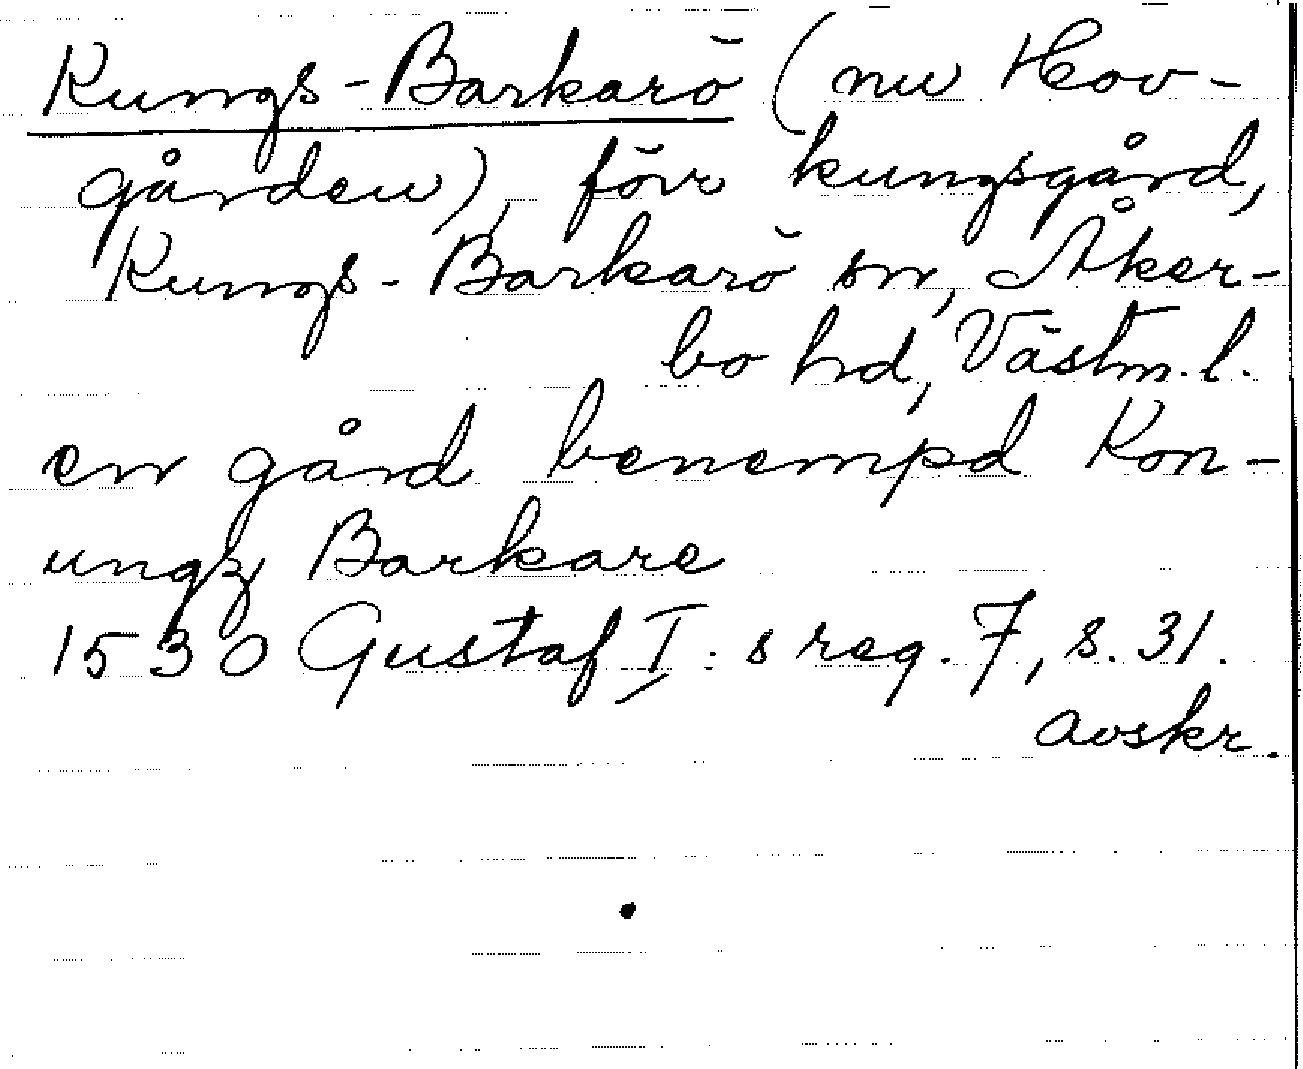 Kungs-Barkarö (nu Hov-
gården), förr kungsgård,
Kungs-Barkarö sn, Åker-
bo hd, Västm. l.
en gård benempd Kon-
ungz Barkare
1530 Gustaf I:s reg. 7, s. 31.
avskr.